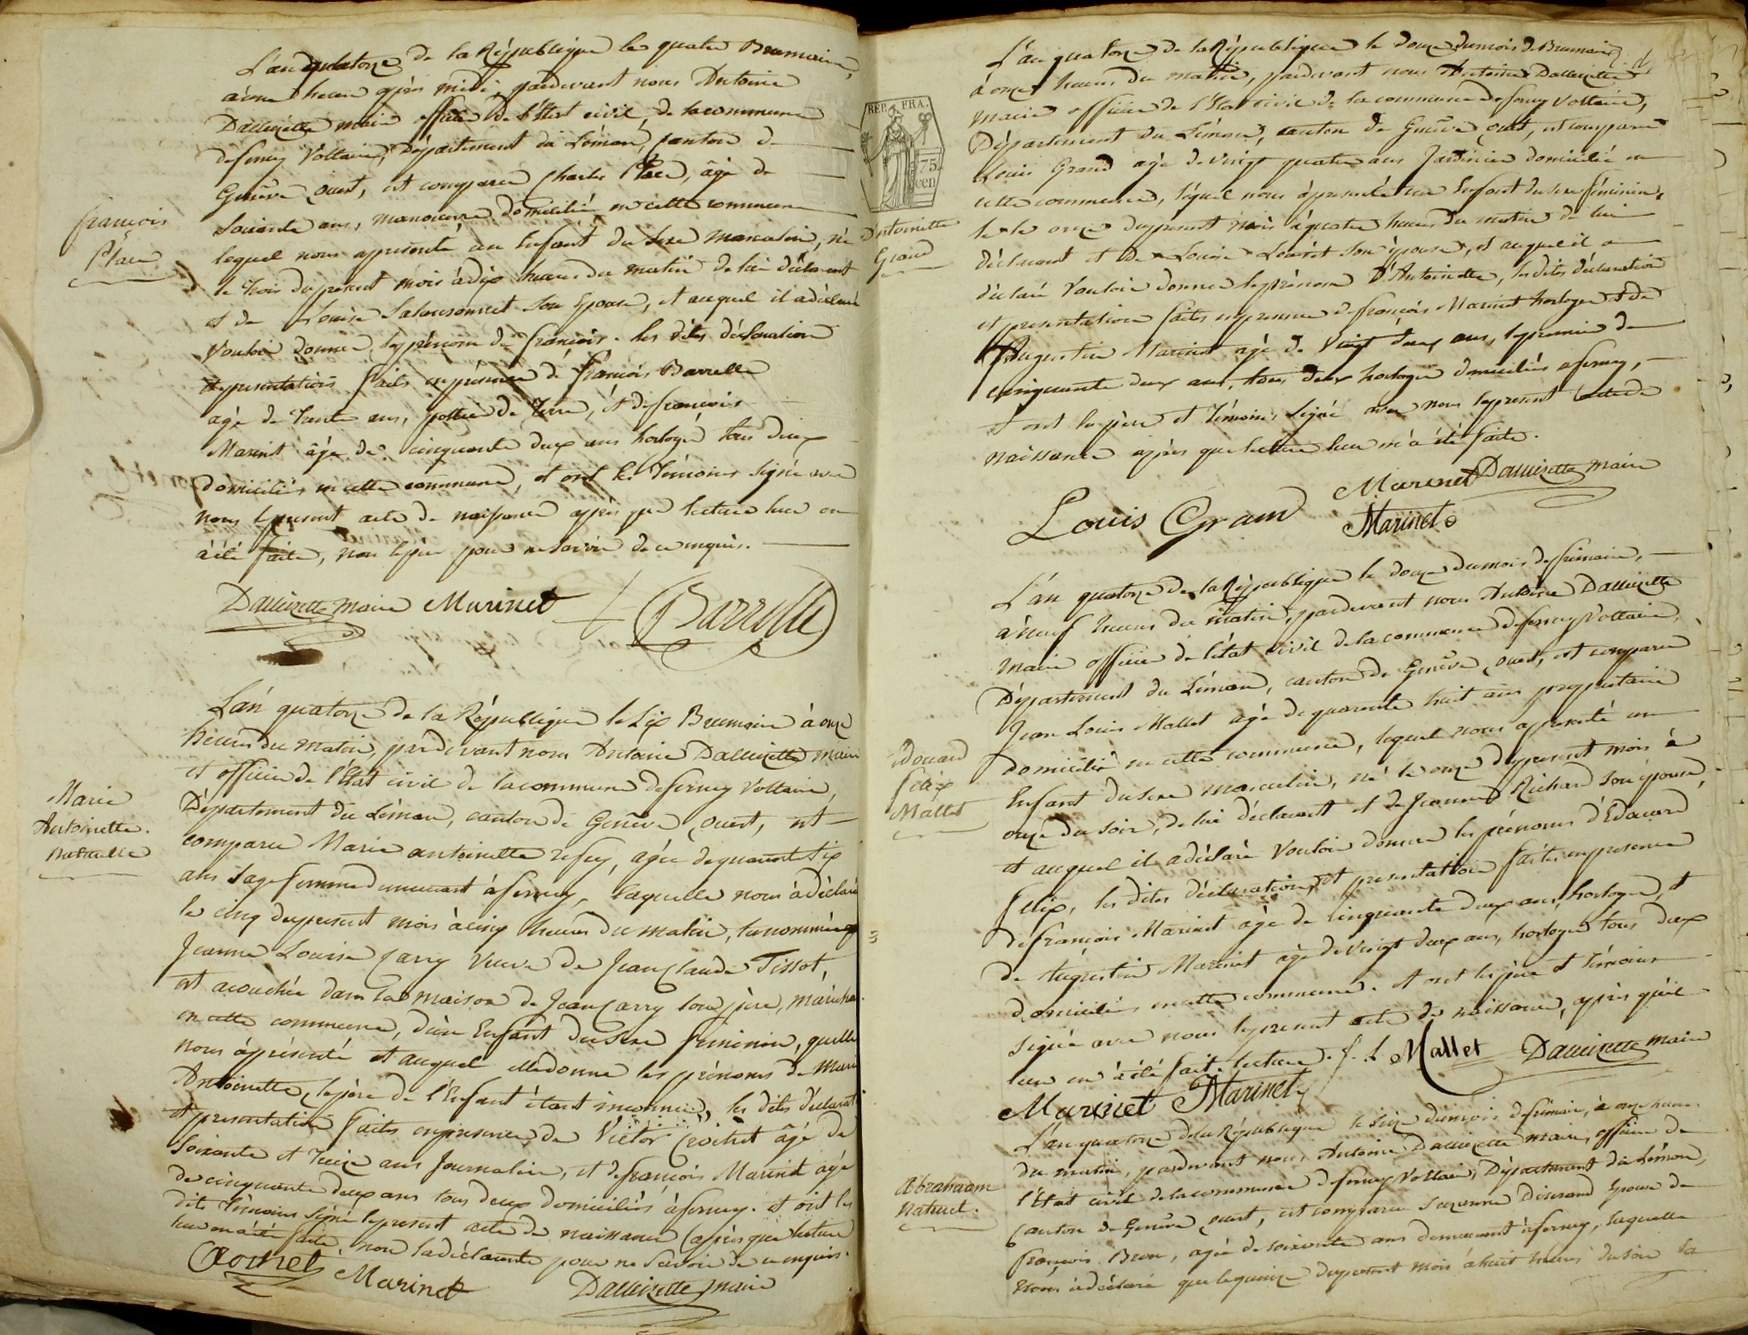 L'an quatorze de la République le quatre Brumaire,
à une heure après midi, pardevant nous Antoine
Dallizette maire officier de l'État civil de la commune
de ferney Voltaire, Département du Léman, Canton de
Genêve ouest, est comparu Charles Place, âgé de
Soixante ans, manœuvre domicilié en cette commune
lequel nous a présenté un Enfant du Sexe Masculin, né
le trois du présent mois à dix heures du matin de lui déclarant
et de Louise Son Epouse, et auquel il a déclaré
vouloir donner le prénom de François. les dites déclaration
et présentation faites en présence de François Barrelle
agé de trente ans, potier de Terre, et de françois
Marinet âgé de cinquante deux ans horloger tous deux
domiciliés en cette commune, et ont les Témoins signé avec
nous le présent acte de naissance après que lecture leur en
à été faite, non le père pour ne savoir de ce enquis.
françois
Place
Dallizette maire Marinet Barrelle
L'an quatorze de la République le Six Brumaire à onze
heures du matin, pardevant nous Antoine Dallizette maire
et officier de l'État civil de la commune de ferney Voltaire,
Département du Léman, canton de Genêve ouest, est
comparue Marie antoinette agée de quarante Six
ans Sage femme demeurant à ferney, laquelle nous à déclaré
le cinq du présent mois à cinq heures du matin, la nommée
Jeanne Louise Carry veuve de Jean Claude Tissot,
est acouchée dans la maison de Jean Carry son père, maréchal
en cette commune, d'un Enfant du Sexe féminin, quelle
nous à présenté et auquel elle donne les prénoms de Marie
Antoinette, le père de l'Enfant étant inconnu, les dites déclarat
et présentation faites en présence de Victor Croitet âgé de
Soixante et treize ans Journalier, et de françois Marinet agé
de cinquante deux ans tous deux domiciliés à ferney. et ont les
dits Témoins signé le présent acte de naissance après que lecture
leur en à été faite, non la déclarante pour ne Savoir de ce enquis.
Marie
Antoinette.
Marinet Dallizette maire
REP. FRA.
75
cen
L'an quatorze de la République le douze du mois de Brumaire
à onze heures du matin, pardevant nous Antoine Dallizette
maire officier de l'Etat civil de la commune de ferney Voltaire,
Département du Léman, canton de Genêve ouest, est comparu
Louis Grand agé de vingt quatre ans Jardinier domicilié en
cette commune, lequel nous à présenté un Enfant du sexe féminin,
né le onze du présent mois à quatre heures du matin de lui
déclarant et de Louise Son épouse, et auquel il a
déclaré vouloir donner le prénom D'Antoinette, les dites déclaration
et présentation faites en présence de françois Marinet horloger et de
Augustin Marinet agé de vingt deux ans, le premier de
cinquante deux ans, tous deux horloger domiciliés a ferney,
et ont le père et Témoins Signé avec nous le présent acte de
naissance après que lecture leur en à été faite.
Antoinette
Grand
Marinet Dallizette maire
Louis Gran Marinet
L'an quatorze de la République le douze du mois de frimaire,
à neuf heures du matin, pardevant nous Antoine Dallizette
maire officier de l'état civil de la commune de ferney Voltaire,
Département du Léman, canton de Genêve ouest, est comparu
Jean Louis Mallet agé de quarante huit ans propriétaire
domicilié en cette commune, lequel nous a présenté un
Enfant du Sexe masculin, né le onze du présent mois à
onze du soir, de lui déclarant et de Jeanne Richar son épouse,
et auquel il a déclaré vouloir donner les prénoms d'Edouard
Felix, les dites déclaration et présentation faites en présence
de françois Marinet agé de cinquante deux ans, horloger, et
de Augustin Marinet agé de vingt deux ans, horloger tous deux
domiciliés en cette commune. et ont le père et témoins
signé avec nous le présent acte de naissance, après qu'il
leur en à été fait lecture. J. L Mallet Dallizette maire
Edouard
felix
Mallet
Marinet Marinet
L'an quatorze de la République le Seize du mois de frimaire, à onze heures
du matin, pardevant nous Antoine Dallizette maire, officier de
l'État civil de la commune de ferney Voltaire, Département du Léman,
Canton de Genêve ouest, est comparue Suzanne Epouse de
françois Brun, agée de soixante ans demeurant à ferney, laquelle
nous a déclaré que le quinze du présent mois à huit heures du soir la
Abrahaam
naturel.